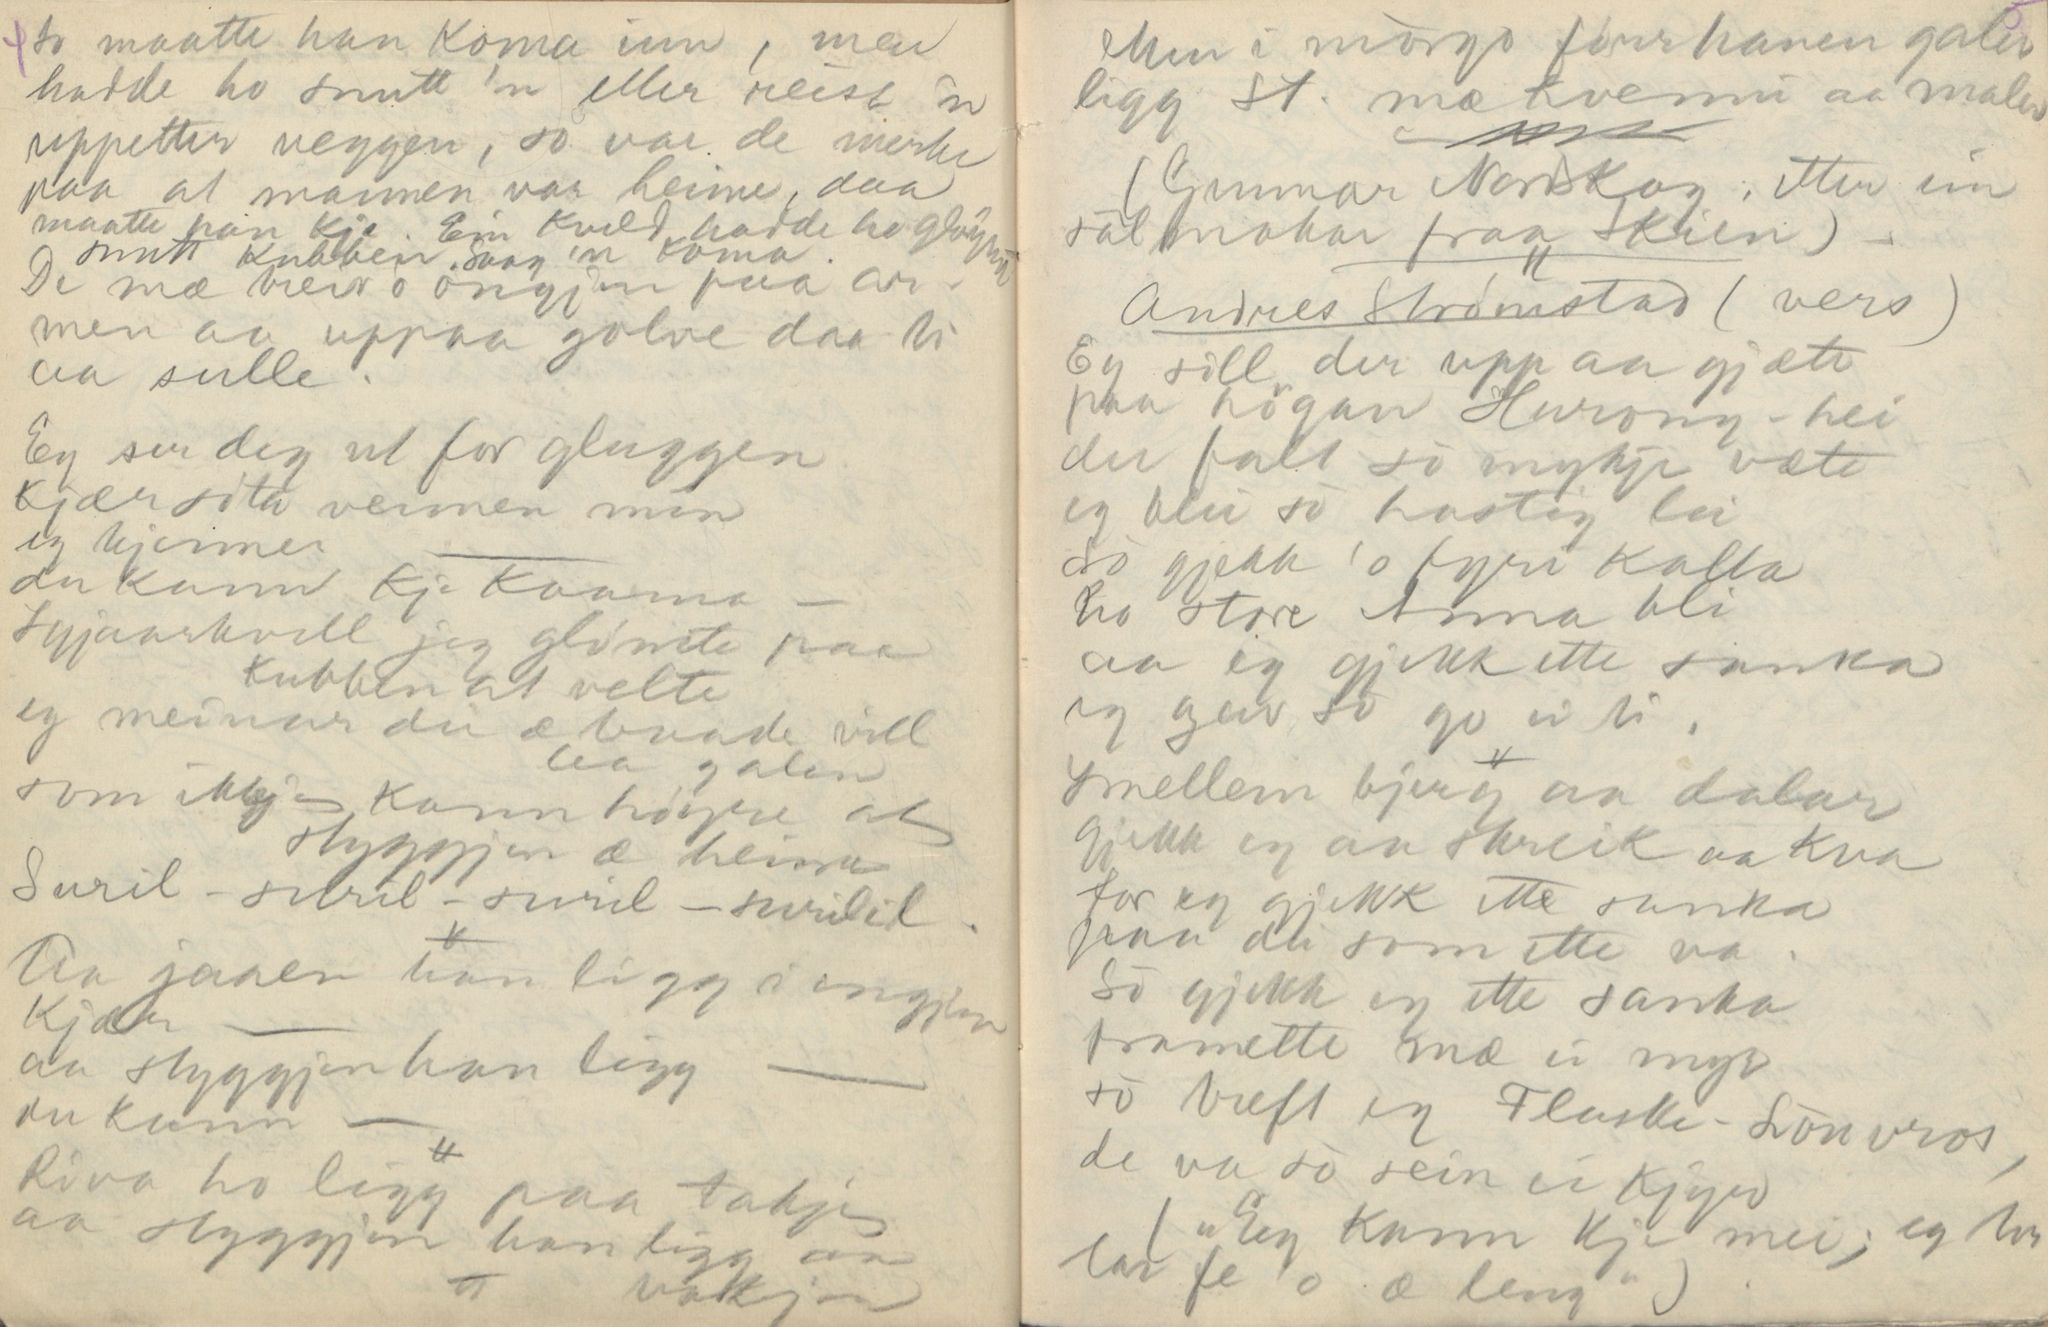 so maatte han koma inn, men
hadde ho snutt 'n eller reist 'n
uppetter veggen, so var de merke
paa at mannen var heime, daa
maatte han kje. Ein kveld hadde ho gløymt
snutt kubben, saag 'n koma.
De mæ breido öngjen paa ar-
men aa uppaa golve daa ti
aa sulle.
Eg ser deg ut for gluggen
kjær söta vennen min
eg kjenner
du kann kje kaama —
Igjaarkvell jeg glömte paa
kubben at velte
eg meinar du æ baade vill
aa galen
som ikkje kann høyre at
styggjen æ heime
Suril - suril - suril - surilil.
"
Aa jaaen han ligg i engjen
Kjær —
aa styggjen han ligg —
du kann —
"
Riva ho ligg paa takje
aa styggjen han ligg aa
" vakjen
Men i mörgo förr hanen galer
ligg St. mæ kvenni aa maler
(Gunnar Nordskog, etter ein
salmakar fraa Skien) -
"
Andres Strömstad (vers)
Eg sill der upp aa gjæte
paa högan Hurong-hei
der falt so mykje væte
eg blei so hastig lei
So gjekk 'o fyri kalla
ho store Anna bli
aa eg gjekk ette sanka
eg gav so go ei ti.
"
Imellem bjerg aa dalar
gjekk eg aa skreik aa kva
for eg gjekk ette sanka
paa di som ette va.
So gjekk eg ette sanka
framette mæ ei myr
so træft eg Flaske-
de va so sein ei kjyr
("Eg kann kje mei; eg
lar fe 'o æ leng")